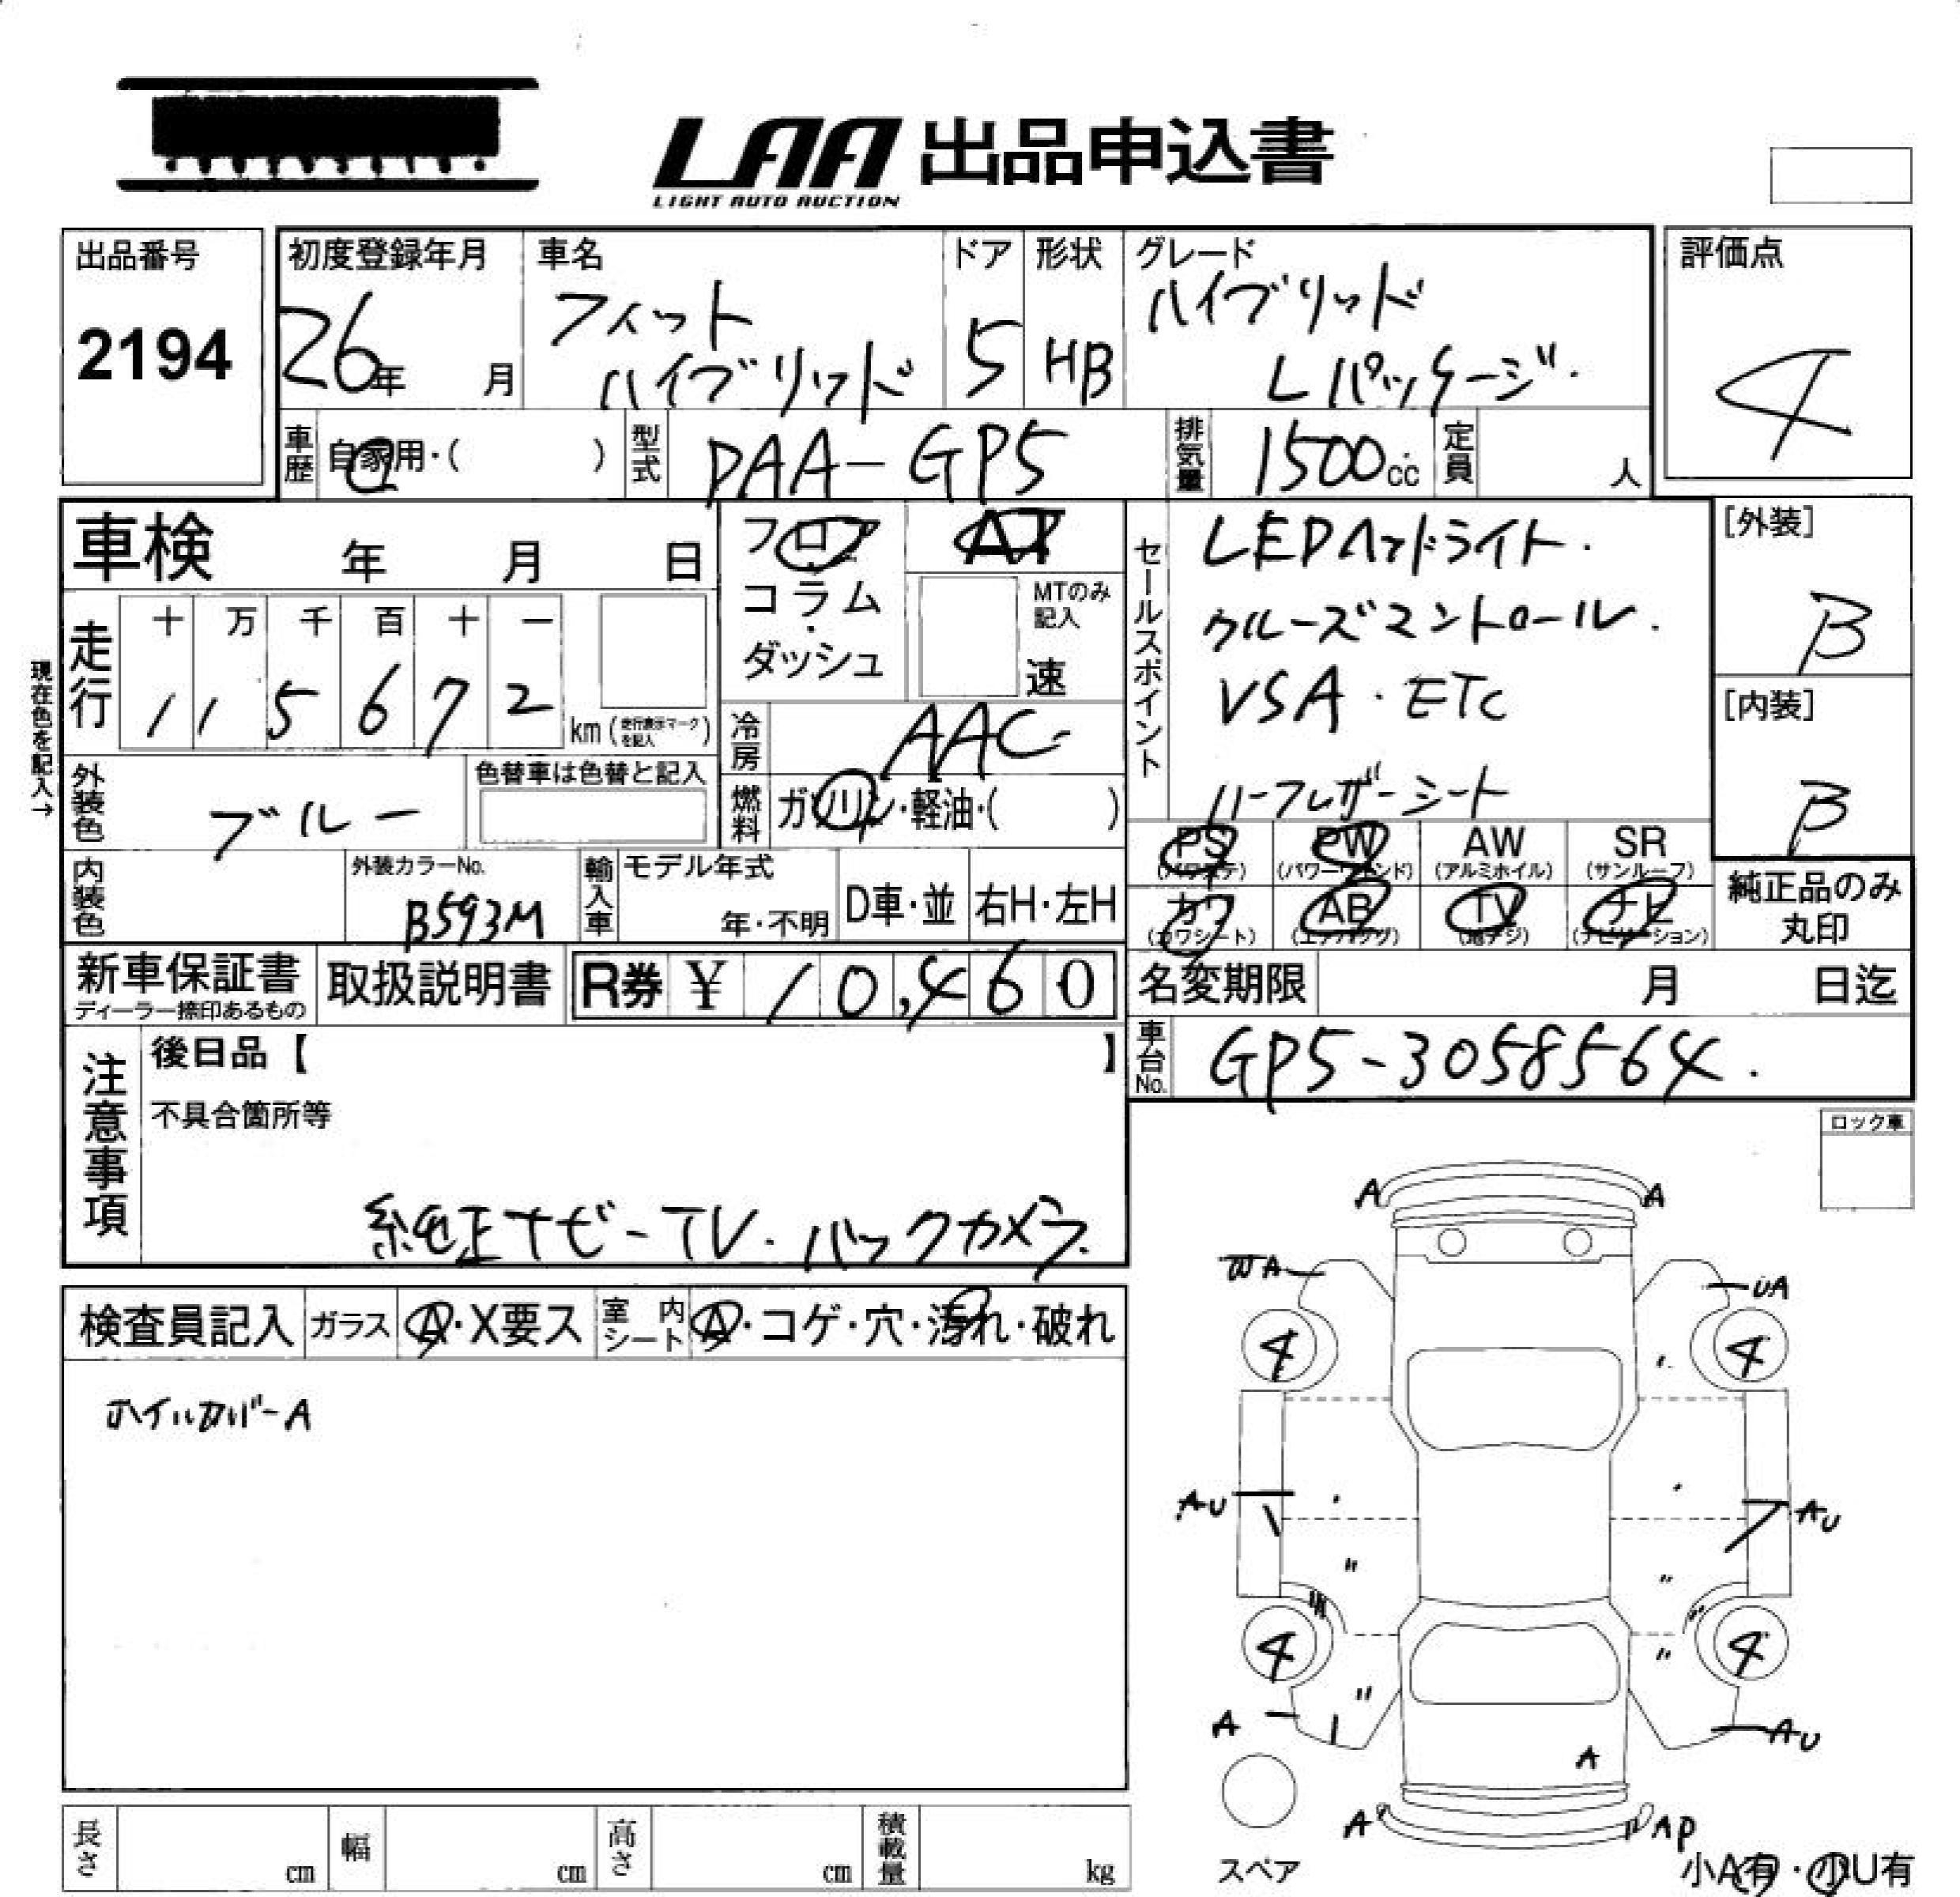 LAA 出品申込書
LIGHT AUTO AUCTION
出品番号
2194
初度登録年月
26年 月
車名
フィット
ハイブリッド
ドア
5
形状
HB
グレード
ハイブリッド
Lパッケージ.
評価点
4
車歴
自家用・( )
型式
DAA-GP5
排気量
1500cc
定員
人
車検 年 月 日
フロア
コラム
ダッシュ
AT
MTのみ
記入
速
セールスポイント
LEDヘッドライト.
クルーズコントロール.
VSA・ETC
ハーフレザーシート
[外装]
B
[内装]
B
現在色を記入→
走行
十 万 千 百 十 一
1 1 5 6 7 2
km(走行表示マークを記入)
冷房
AAC
外装色
ブルー
色替車は色替と記入
燃料
ガソリン・軽油・( )
内装色
外装カラーNo.
B593M
輸入車
モデル年式
年・不明
D車・並
右H・左H
PS
(パワステ)
PW
(パワーウィンド)
AW
(アルミホイル)
SR
(サンルーフ)
カワ
(カワシート)
AB
(エアバッグ)
TV
(地デジ)
ナビ
(ナビゲーション)
純正品のみ
丸印
新車保証書
ディーラー捺印あるもの
取扱説明書
R券 ¥ 10,460
名変期限 月 日迄
車台No.
GP5-3058564.
注意事項
後日品【 】
不具合箇所等
純正ナビ-TV.バックカメラ.
ロック車
検査員記入
ガラス
A・X要ス
室内
シート
A・コゲ・穴・汚れ・破れ
ホイルカバーA
A A
WA UA
4 4
AU AU
〃 〃
4 4
〃 〃
A AU
A
A AP
スペア
小A有・小U有
長さ cm
幅 cm
高さ cm
積載量 kg